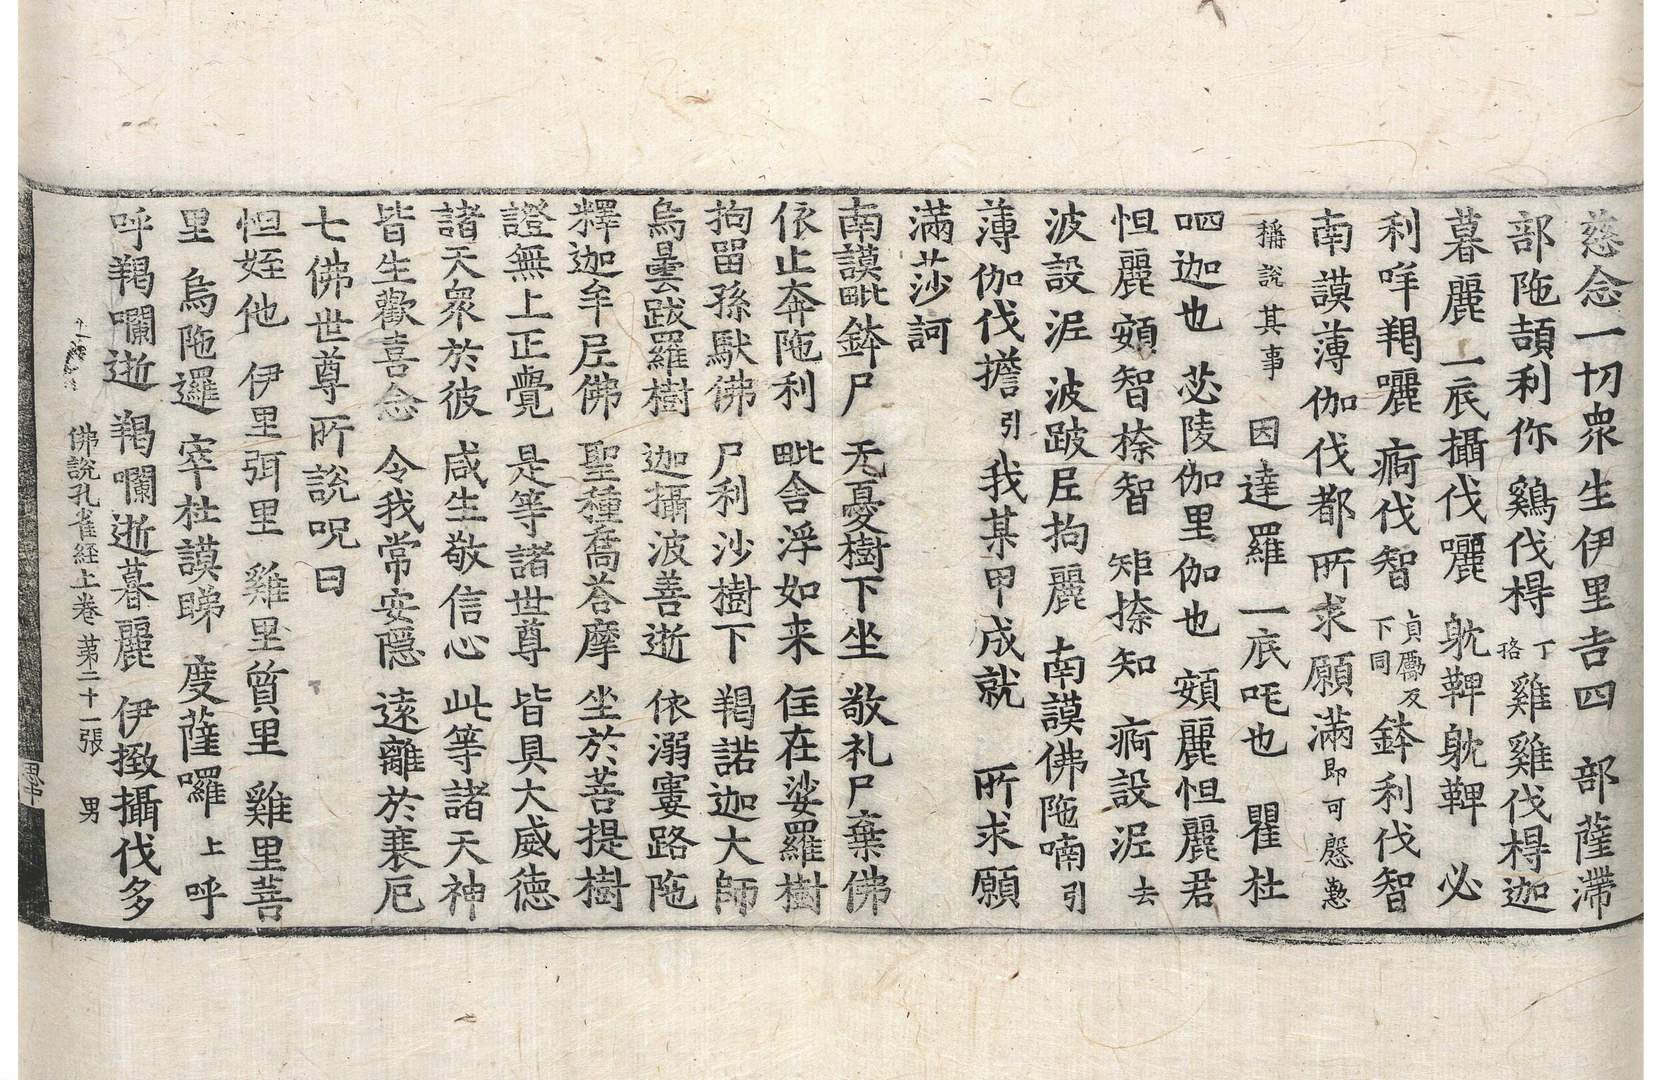 慈念一切衆生伊里吉四　部薩滯
部陁頡利你　鷄伐棏丁珞雞雞伐棏迦
暮麗　一底攝伐囇　躭鞞躭鞞　必
利哶羯囇　痾伐智貞厲反下同鉢利伐智
南謨薄伽伐都　所求願滿即可慇懃
稱說其事　因達羅　一底吒也　瞿杜
呬迦也　苾陵伽里伽也　頞麗怛麗君
怛麗頞智捺智　矩捺知　痾設泥去
波設泥　波跛𡰱拘麗　南謨佛陁喃引
薄伽伐擔引我某甲成就　所求願
滿莎訶
南謨毗鉢尸　无憂樹下坐　敬礼尸棄佛
依止奔陁利　毗舍浮如来　住在娑羅樹
拘留孫馱佛　尸利沙樹下　羯諾迦大師
烏曇跋羅樹　迦攝波善逝　依溺窶路陁
釋迦牟𡰱佛　聖種喬荅摩　坐於菩提樹
證無上正覺　是等諸世尊　皆具大威德
諸天衆於彼　咸生敬信心　此等諸天神
皆生歡喜念　令我常安隱　遠離於衰厄
七佛世尊所說呪曰
怛姪他　伊里弭里　雞里質里　雞里菩
里　烏陁邏　窣杜謨睇　度薩囉上呼
呼羯㘓逝　羯㘓逝暮麗　伊㨖攝伐多
佛說孔雀経上卷　苐二十一張　男